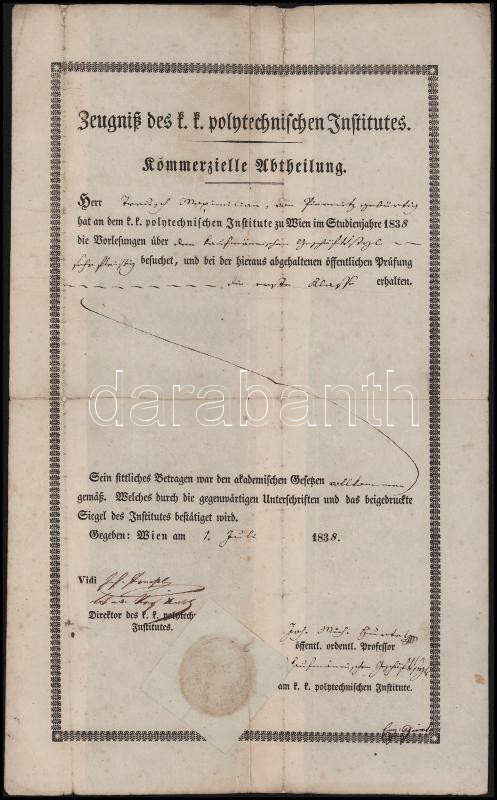 Zeugniß des k. k. polytechnischen Institutes.
Kommerzielle Abtheilung.
Herr Maximilian, gebürtig
hat an dem k. k. polytechnischen Institute zu Wien im Studienjahre 1838
die Vorlesungen über den kaufmännischen Geschäftsstyl
sehr fleißig besucht, und bei der hieraus abgehaltenen öffentlichen Prüfung
die erste Klasse erhalten.
darabanth
Sein sittliches Betragen war den akademischen Gesetzen vollkommen
gemäß. Welches durch die gegenwärtigen Unterschriften und das beigedruckte
Siegel des Institutes bestätiget wird.
Gegeben: Wien am 1. Juli 1838.
Vidi
Direktor des k. k. polytech.
Institutes.
Joh. Mich.
öffentl. ordentl. Professor
kaufmännischen Geschäftsstyls
am k. k. polytechnischen Institute.